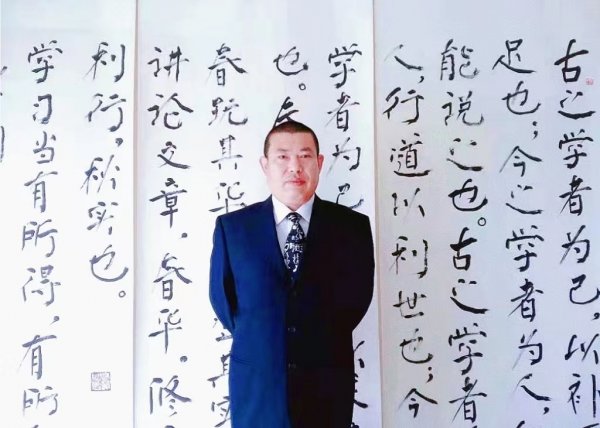 古之学者为己，以补
足也；今之学者为人，
能说之也。古之学者
人，行道以利世也；今
学者为己
也。
春玩其华
其实
讲论文章，春华。修
利行，秋实也。
学习当有所得，有所